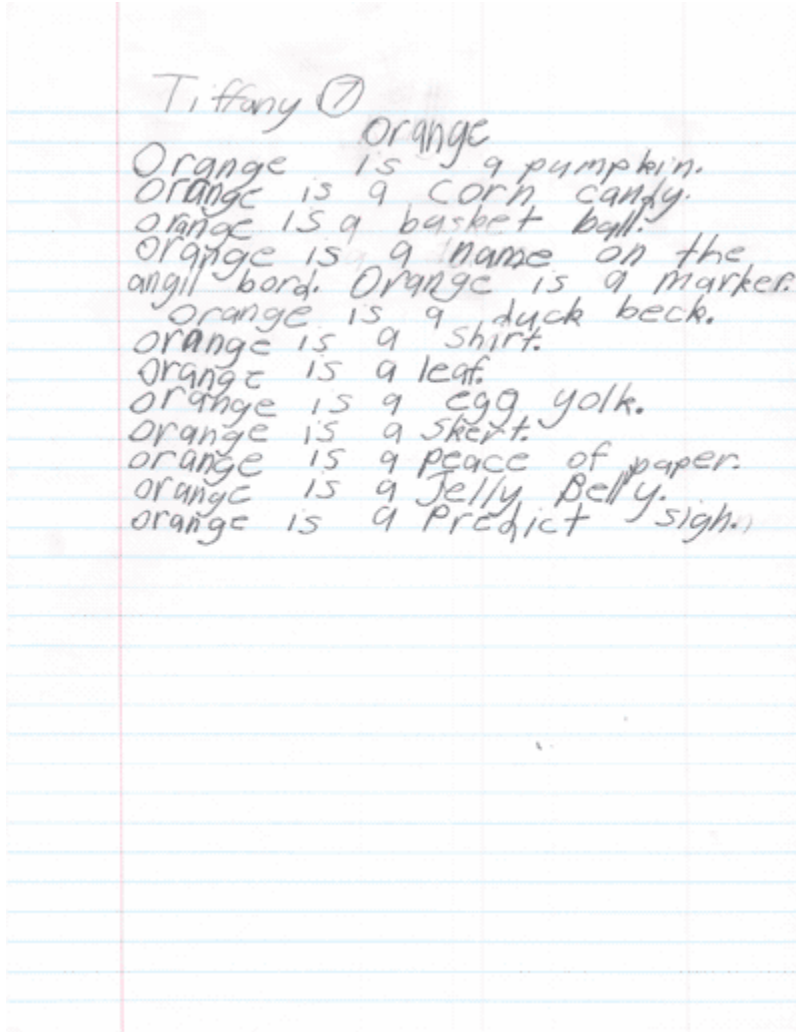 Tiffany 7
orange
Orange is a pumpkin.
orange is a corn candy.
orange is a basket ball.
orange is a name on the
angil bord. Orange is a marker.
orange is a duck beck.
orange is a shirt.
orange is a leaf.
orange is a egg yolk.
orange is a skert.
orange is a peace of paper.
orange is a Jelly Belly.
orange is a Predict sigh.